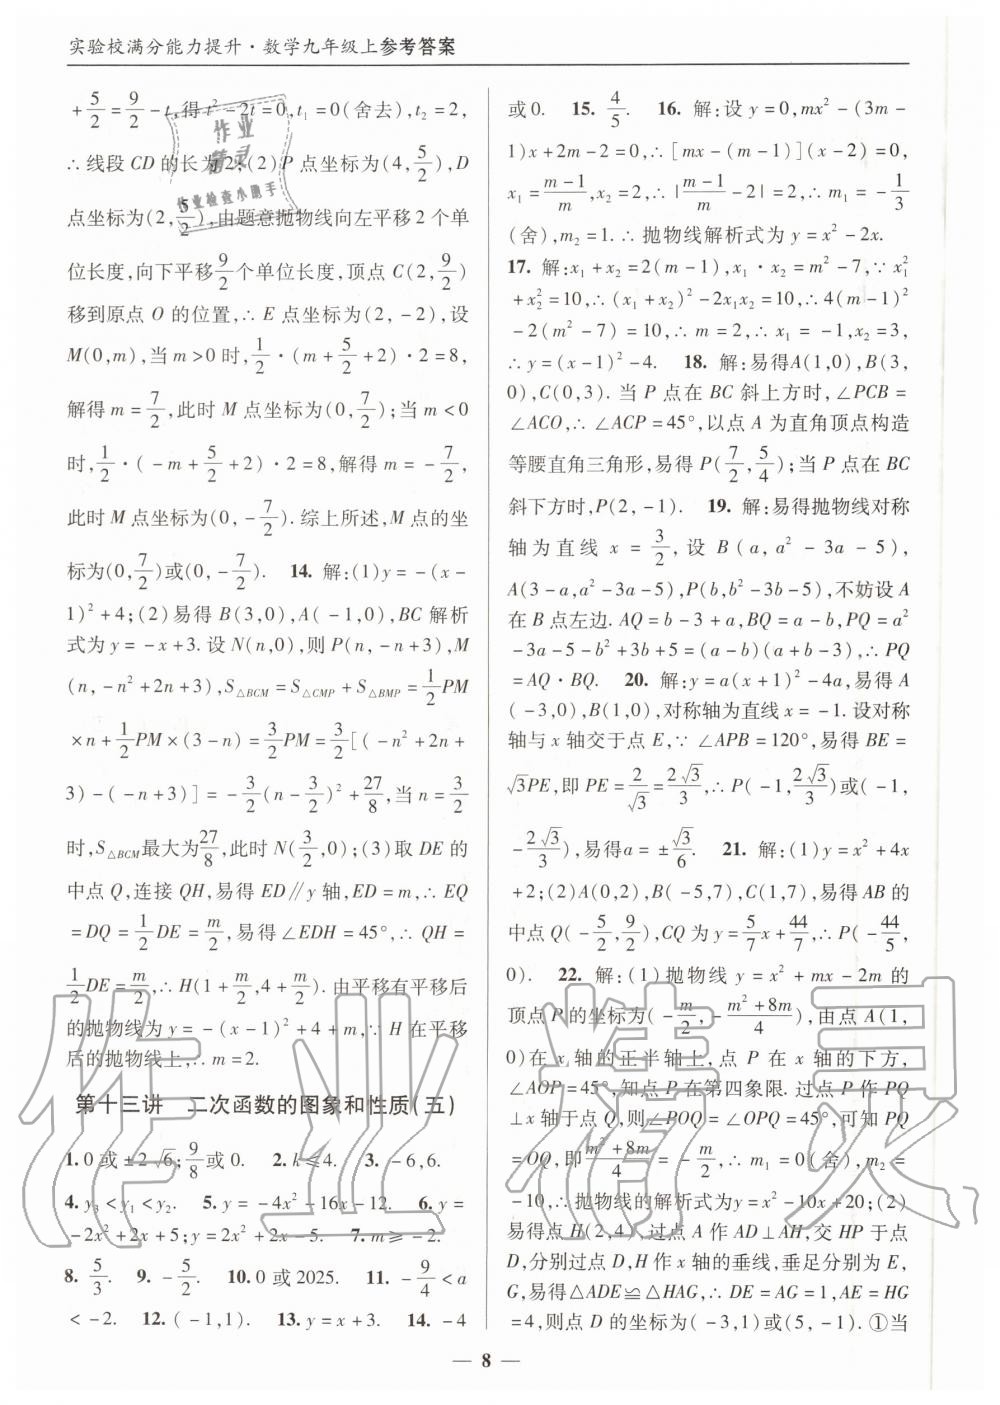 实验校满分能力提升·数学九年级上参考答案
+5/2=9/2-t,得t²-2t=0,t₁=0(舍去),t₂=2,
∴线段CD的长为2;(2)P点坐标为(4,5/2),D
点坐标为(2,5/2),由题意抛物线向左平移2个单
位长度,向下平移9/2个单位长度,顶点C(2,9/2)
移到原点O的位置,∴E点坐标为(2,-2),设
M(0,m),当m>0时,1/2·(m+5/2+2)·2=8,
解得m=7/2,此时M点坐标为(0,7/2);当m<0
时,1/2·(-m+5/2+2)·2=8,解得m=-7/2,
此时M点坐标为(0,-7/2).综上所述,M点的坐
标为(0,7/2)或(0,-7/2). 14. 解:(1)y=-(x-
1)²+4;(2)易得B(3,0),A(-1,0),BC解析
式为y=-x+3.设N(n,0),则P(n,-n+3),M
(n,-n²+2n+3),S△BCM=S△CMP+S△BMP=1/2PM
×n+1/2PM×(3-n)=3/2PM=3/2[(-n²+2n+
3)-(-n+3)]=-3/2(n-3/2)²+27/8,当n=3/2
时,S△BCM最大为27/8,此时N(3/2,0);(3)取DE的
中点Q,连接QH,易得ED∥y轴,ED=m,∴EQ
=DQ=1/2DE=m/2,易得∠EDH=45°,∴QH=
1/2DE=m/2,∴H(1+m/2,4+m/2).由平移有平移后
的抛物线为y=-(x-1)²+4+m,∵H在平移
后的抛物线上,∴m=2.
第十三讲 二次函数的图象和性质(五)
1.0或±2√6;9/8或0. 2.k≤4. 3.-6,6.
4.y₃<y₁<y₂. 5.y=-4x²-16x-12. 6.y=
-2x²+2x+5;y=2x²+2x-5. 7.m≥-2.
8. 5/3. 9. -5/2. 10.0或2025. 11. -9/4<a
<-2. 12.(-1,1). 13.y=x+3. 14.-4
或0. 15. 4/5. 16. 解:设y=0,mx²-(3m-
1)x+2m-2=0,∴[mx-(m-1)](x-2)=0,
x₁=m-1/m,x₂=2,∴|m-1/m-2|=2,∴m₁=-1/3
(舍),m₂=1.∴抛物线解析式为y=x²-2x.
17. 解:x₁+x₂=2(m-1),x₁·x₂=m²-7,∵x₁²
+x₂²=10,∴(x₁+x₂)²-2x₁x₂=10,∴4(m-1)²
-2(m²-7)=10,∴m=2,∴x₁=-1,x₂=3,
∴y=(x-1)²-4. 18. 解:易得A(1,0),B(3,
0),C(0,3).当P点在BC斜上方时,∠PCB=
∠ACO,∴∠ACP=45°,以点A为直角顶点构造
等腰直角三角形,易得P(7/2,5/4);当P点在BC
斜下方时,P(2,-1). 19. 解:易得抛物线对称
轴为直线x=3/2,设B(a,a²-3a-5),
A(3-a,a²-3a-5),P(b,b²-3b-5),不妨设A
在B点左边.AQ=b-3+a,BQ=a-b,PQ=a²
-3a-5-b²+3b+5=(a-b)(a+b-3),∴PQ
=AQ·BQ. 20. 解:y=a(x+1)²-4a,易得A
(-3,0),B(1,0),对称轴为直线x=-1.设对称
轴与x轴交于点E,∵∠APB=120°,易得BE=
√3PE,即PE=2/√3=2√3/3,∴P(-1,2√3/3)或(-1,
-2√3/3),易得a=±√3/6. 21. 解:(1)y=x²+4x
+2;(2)A(0,2),B(-5,7),C(1,7),易得AB的
中点Q(-5/2,9/2),CQ为y=5/7x+44/7,∴P(-44/5,
0). 22. 解:(1)抛物线y=x²+mx-2m的
顶点P的坐标为(-m/2,-m²+8m/4),由点A(1,
0)在x轴的正半轴上,点P在x轴的下方,
∠AOP=45°,知点P在第四象限.过点P作PQ
⊥x轴于点Q,则∠POQ=∠OPQ=45°,可知PQ
=OQ,即m²+8m/4=-m/2,∴m₁=0(舍),m₂=
-10,∴抛物线的解析式为y=x²-10x+20;(2)
易得点H(2,4),过点A作AD⊥AH,交HP于点
D,分别过点D,H作x轴的垂线,垂足分别为E,
G,易得△ADE≌△HAG,∴DE=AG=1,AE=HG
=4,则点D的坐标为(-3,1)或(5,-1).①当
— 8 —
作业
精灵
作业检查小助手
作业精灵